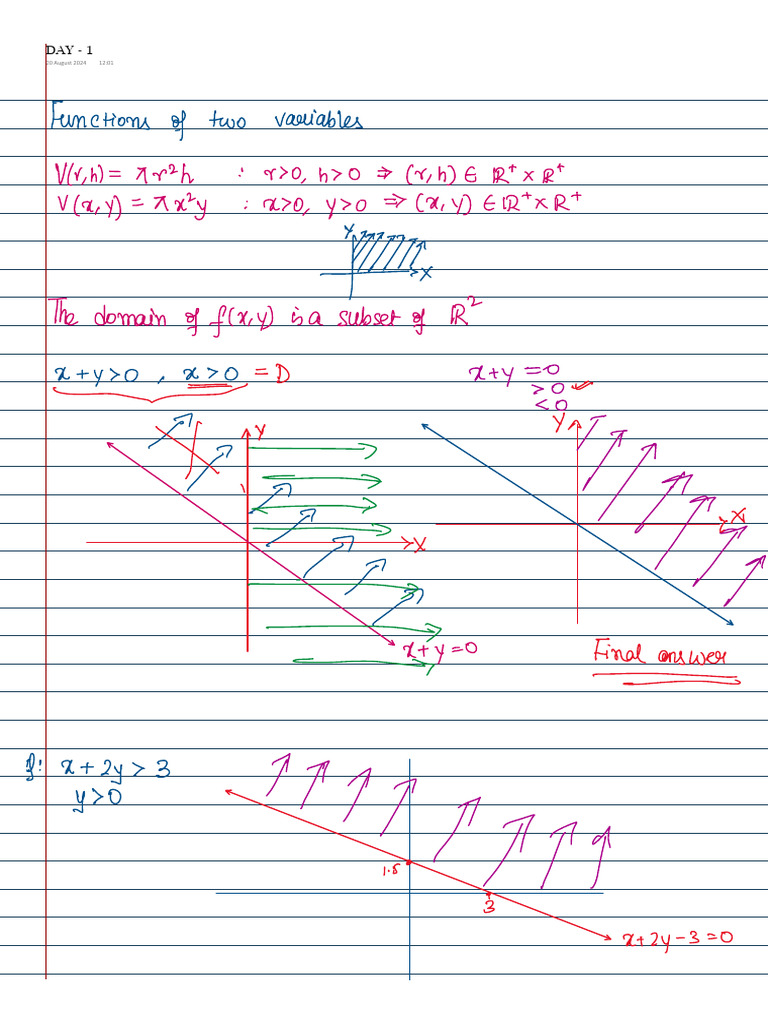 DAY - 1
28 August 2024 12:01
Functions of two variables
V(r,h) = πr²h : r>0, h>0 ⇒ (r,h) ∈ ℝ⁺ × ℝ⁺
V(x,y) = πx²y : x>0, y>0 ⇒ (x,y) ∈ ℝ⁺ × ℝ⁺
Y
X
The domain of f(x,y) is a subset of ℝ²
x+y>0 , x>0 = D
x+y =0
>0
<0
Y
X
x+y=0
Y
X
Final answer
f: x+2y>3
y>0
1.5
3
x+2y-3=0